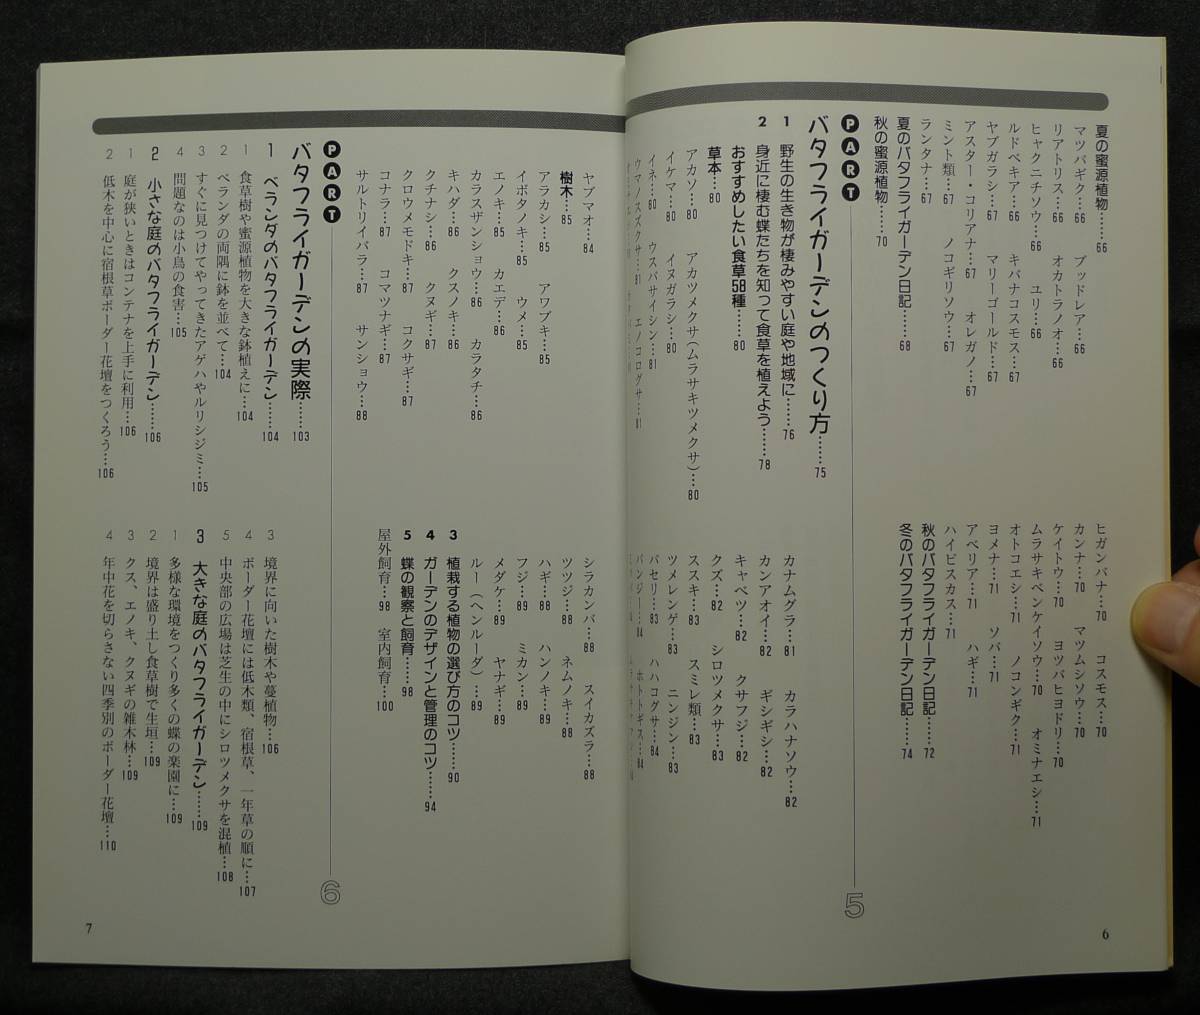 夏の蜜源植物……66
マツバギク…66 ブッドレア…66
リアトリス…66 オカトラノオ…66
ヒャクニチソウ…66 ユリ…66
ルドベキア…66 キバナコスモス…67
ヤブガラシ…67 マリーゴールド…67
アスター・コリアナ…67 オレガノ…67
ミント類…67 ノコギリソウ…67
ランタナ…67
夏のバタフライガーデン日記……68
秋の蜜源植物……70
ヒガンバナ…70 コスモス…70
カンナ…70 マツムシソウ…70
ケイトウ…70 ヨツバヒヨドリ…70
ムラサキベンケイソウ…70 オミナエシ…71
オトコエシ…71 ノコンギク…71
ヨメナ…71 ソバ…71
アベリア…71 ハギ…71
ハイビスカス…71
秋のバタフライガーデン日記……72
冬のバタフライガーデン日記……74
PART
5
バタフライガーデンのつくり方……75
1 野生の生き物が棲みやすい庭や地域に……76
2 身近に棲む蝶たちを知って食草を植えよう……78
おすすめしたい食草58種……80
草本…80
アカソ…80 アカツメクサ(ムラサキツメクサ)…80
イケマ…80 イヌガラシ…80
イネ…80 ウスバサイシン…81
ウマノスズクサ…81 エノコログサ…81
カナムグラ…81 カラハナソウ…82
カンアオイ…82 ギシギシ…82
キャベツ…82 クサフジ…82
クズ…82 シロツメクサ…83
ススキ…83 スミレ類…83
ツメレンゲ…83 ニンジン…83
パセリ…83 ハハコグサ…84
パンジー…84 ホトトギス…84
6
ヤブマオ…84
樹木…85
アラカシ…85 アワブキ…85
イボタノキ…85 ウメ…85
エノキ…85 カエデ…86
カラスザンショウ…86 カラタチ…86
キハダ…86 クスノキ…86
クチナシ…86 クヌギ…87
クロウメモドキ…87 コクサギ…87
コナラ…87 コマツナギ…87
サルトリイバラ…87 サンショウ…88
シラカンバ…88 スイカズラ…88
ツツジ…88 ネムノキ…88
ハギ…88 ハンノキ…89
フジ…89 ミカン…89
メダケ…89 ヤナギ…89
ルー(ヘンルーダ)…89
3 植栽する植物の選び方のコツ……90
4 ガーデンのデザインと管理のコツ……94
5 蝶の観察と飼育……98
屋外飼育…98 室内飼育…100
PART
6
バタフライガーデンの実際……103
1 ベランダのバタフライガーデン……104
1 食草樹や蜜源植物を大きな鉢植えに…104
2 ベランダの両隅に鉢を並べて…104
3 すぐに見つけてやってきたアゲハやルリシジミ…105
4 問題なのは小鳥の食害…105
2 小さな庭のバタフライガーデン……106
1 庭が狭いときはコンテナを上手に利用…106
2 低木を中心に宿根草ボーダー花壇をつくろう…106
3 境界に向いた樹木や蔓植物…106
4 ボーダー花壇には低木類、宿根草、一年草の順に…107
5 中央部の広場は芝生の中にシロツメクサを混植…108
3 大きな庭のバタフライガーデン……109
1 多様な環境をつくり多くの蝶の楽園に…109
2 境界は盛り土し食草樹で生垣…109
3 クス、エノキ、クヌギの雑木林…109
4 年中花を切らさない四季別のボーダー花壇…110
7